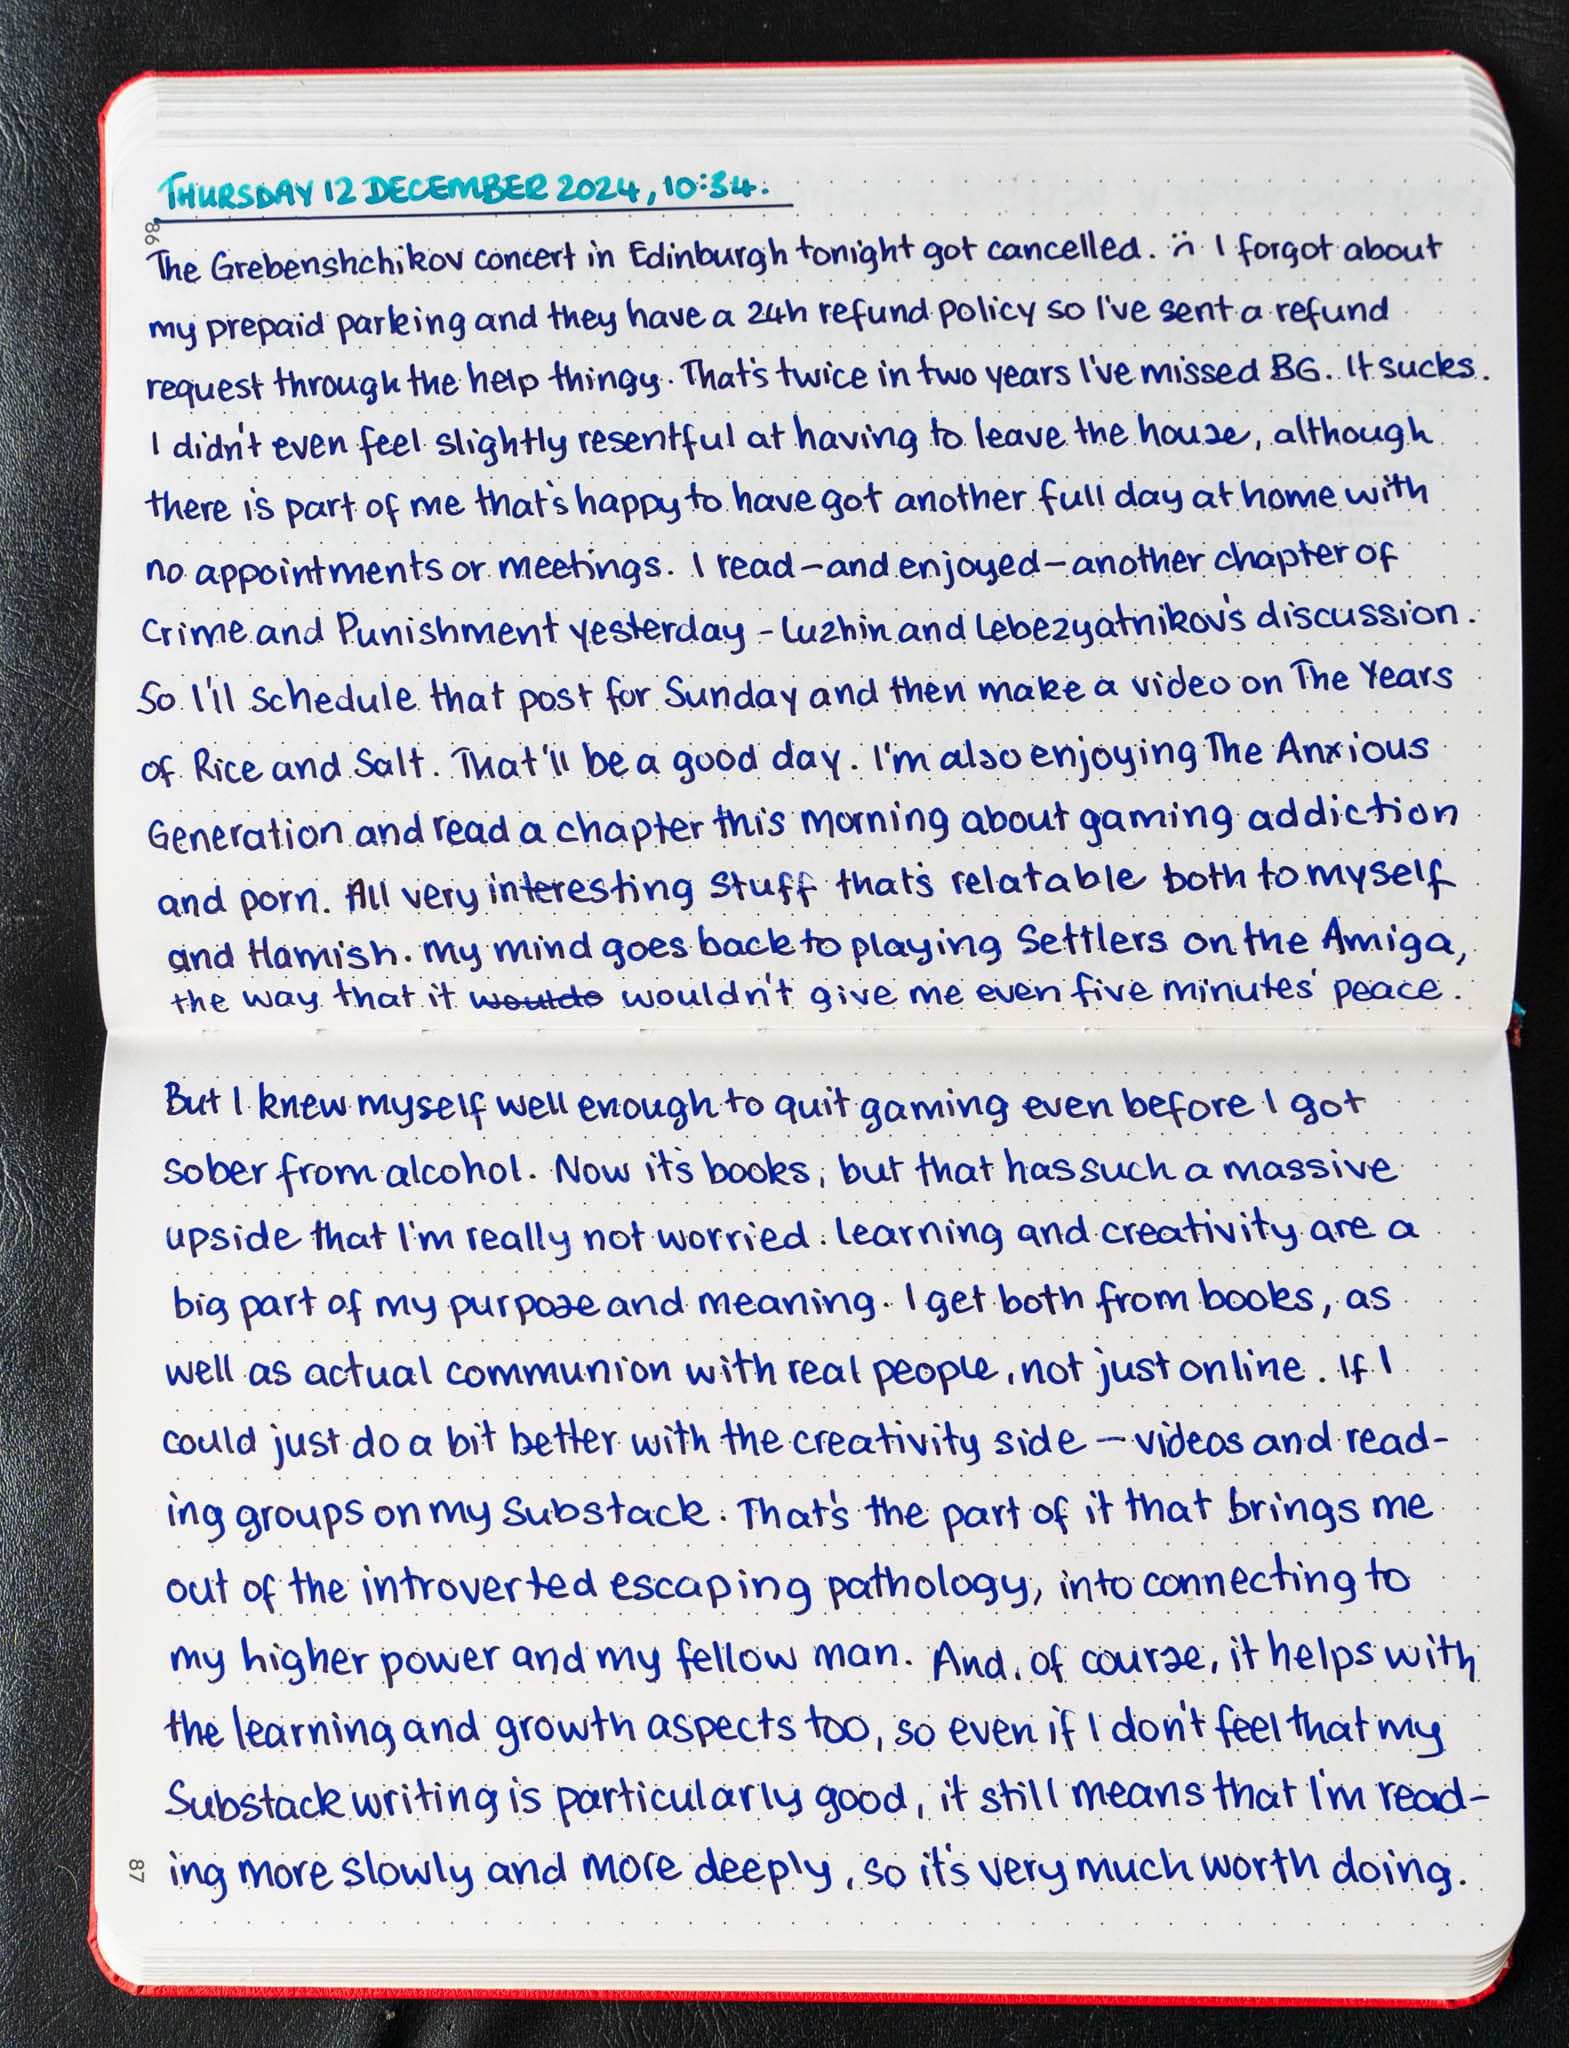 THURSDAY 12 DECEMBER 2024, 10:34.
86
The Grebenshchikov concert in Edinburgh tonight got cancelled. :( I forgot about
my prepaid parking and they have a 24h refund policy so I've sent a refund
request through the help thingy. That's twice in two years I've missed BG. It sucks.
I didn't even feel slightly resentful at having to leave the house, although
there is part of me that's happy to have got another full day at home with
no appointments or meetings. I read – and enjoyed – another chapter of
Crime and Punishment yesterday – Luzhin and Lebezyatnikov's discussion.
So I'll schedule that post for Sunday and then make a video on The Years
of Rice and Salt. That'll be a good day. I'm also enjoying The Anxious
Generation and read a chapter this morning about gaming addiction
and porn. All very interesting stuff that's relatable both to myself
and Hamish. My mind goes back to playing Settlers on the Amiga,
the way that it wouldn't give me even five minutes' peace.
But I knew myself well enough to quit gaming even before I got
sober from alcohol. Now it's books, but that has such a massive
upside that I'm really not worried. Learning and creativity are a
big part of my purpose and meaning. I get both from books, as
well as actual communion with real people, not just online. If I
could just do a bit better with the creativity side – videos and read-
ing groups on my Substack. That's the part of it that brings me
out of the introverted escaping pathology, into connecting to
my higher power and my fellow man. And, of course, it helps with
the learning and growth aspects too, so even if I don't feel that my
Substack writing is particularly good, it still means that I'm read-
ing more slowly and more deeply, so it's very much worth doing.
87